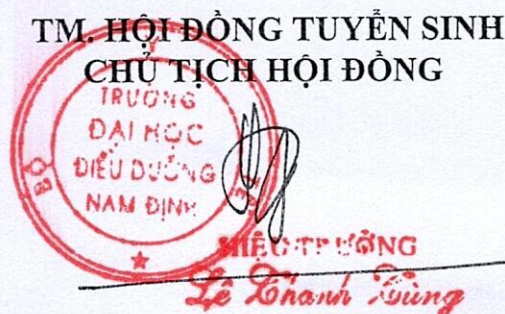 TM. HỘI ĐỒNG TUYỂN SINH
CHỦ TỊCH HỘI ĐỒNG
TRƯỜNG
ĐẠI HỌC
ĐIỀU DƯỠNG
NAM ĐỊNH
BỘ
HIỆU TRƯỞNG
Lê Thanh Tùng